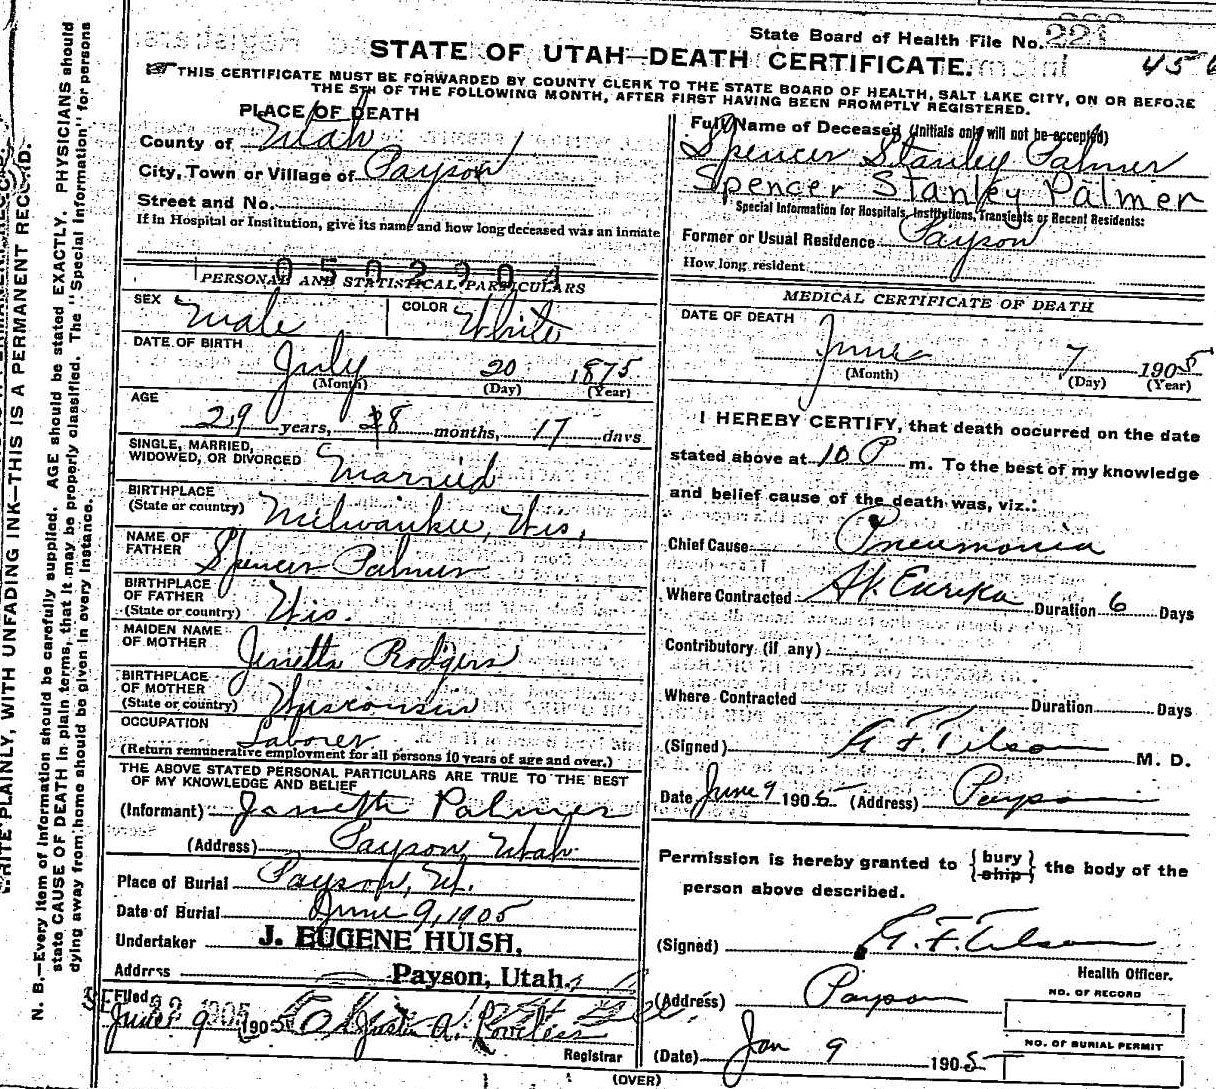 State Board of Health File No. 221
456
STATE OF UTAH—DEATH CERTIFICATE.
THIS CERTIFICATE MUST BE FORWARDED BY COUNTY CLERK TO THE STATE BOARD OF HEALTH, SALT LAKE CITY, ON OR BEFORE
THE 5TH OF THE FOLLOWING MONTH, AFTER FIRST HAVING BEEN PROMPTLY REGISTERED.
PLACE OF DEATH
County of Utah
City, Town or Village of Payson
Street and No.
If in Hospital or Institution, give its name and how long deceased was an inmate
0502904
PERSONAL AND STATISTICAL PARTICULARS
SEX Male COLOR White
DATE OF BIRTH
July 20 1875
(Month) (Day) (Year)
AGE
29 years, 8 months, 17 days
SINGLE, MARRIED,
WIDOWED, OR DIVORCED Married
BIRTHPLACE
(State or country) Milwaukee, Wis.
NAME OF
FATHER Spencer Palmer
BIRTHPLACE
OF FATHER
(State or country) Wis.
MAIDEN NAME
OF MOTHER Jenetta Rodgers
BIRTHPLACE
OF MOTHER
(State or country) Wisconsin
OCCUPATION
Laborer
(Return remunerative employment for all persons 10 years of age and over.)
THE ABOVE STATED PERSONAL PARTICULARS ARE TRUE TO THE BEST
OF MY KNOWLEDGE AND BELIEF
(Informant) Janetta Palmer
(Address) Payson, Utah
Place of Burial Payson, Ut.
Date of Burial June 9, 1905
Undertaker J. EUGENE HUISH,
Address Payson, Utah
Filed
June 9 1905 Justin A. Loveless
Registrar
Full Name of Deceased (Initials only will not be accepted)
Spencer Stanley Palmer
Spencer Stanley Palmer
Special Information for Hospitals, Institutions, Transients or Recent Residents:
Former or Usual Residence Payson
How long resident
MEDICAL CERTIFICATE OF DEATH
DATE OF DEATH
June 7 1905
(Month) (Day) (Year)
I HEREBY CERTIFY, that death occurred on the date
stated above at 10 P m. To the best of my knowledge
and belief cause of the death was, viz.:
Chief Cause Pneumonia
Where Contracted At. Eureka Duration 6 Days
Contributory (if any)
Where Contracted Duration Days
(Signed) A. F. Tilson M. D.
Date June 9 1905 (Address) Payson
Permission is hereby granted to { bury ship } the body of the
person above described.
(Signed) A. F. Tilson
Health Officer.
(Address) Payson
NO. OF RECORD
(Date) Jan 9 1905
NO. OF BURIAL PERMIT
(OVER)
N. B.—Every item of information should be carefully supplied. AGE should be stated EXACTLY. PHYSICIANS should
state CAUSE OF DEATH in plain terms, that it may be properly classified. The "Special Information" for persons
dying away from home should be given in every instance.
WRITE PLAINLY, WITH UNFADING INK—THIS IS A PERMANENT RECORD.